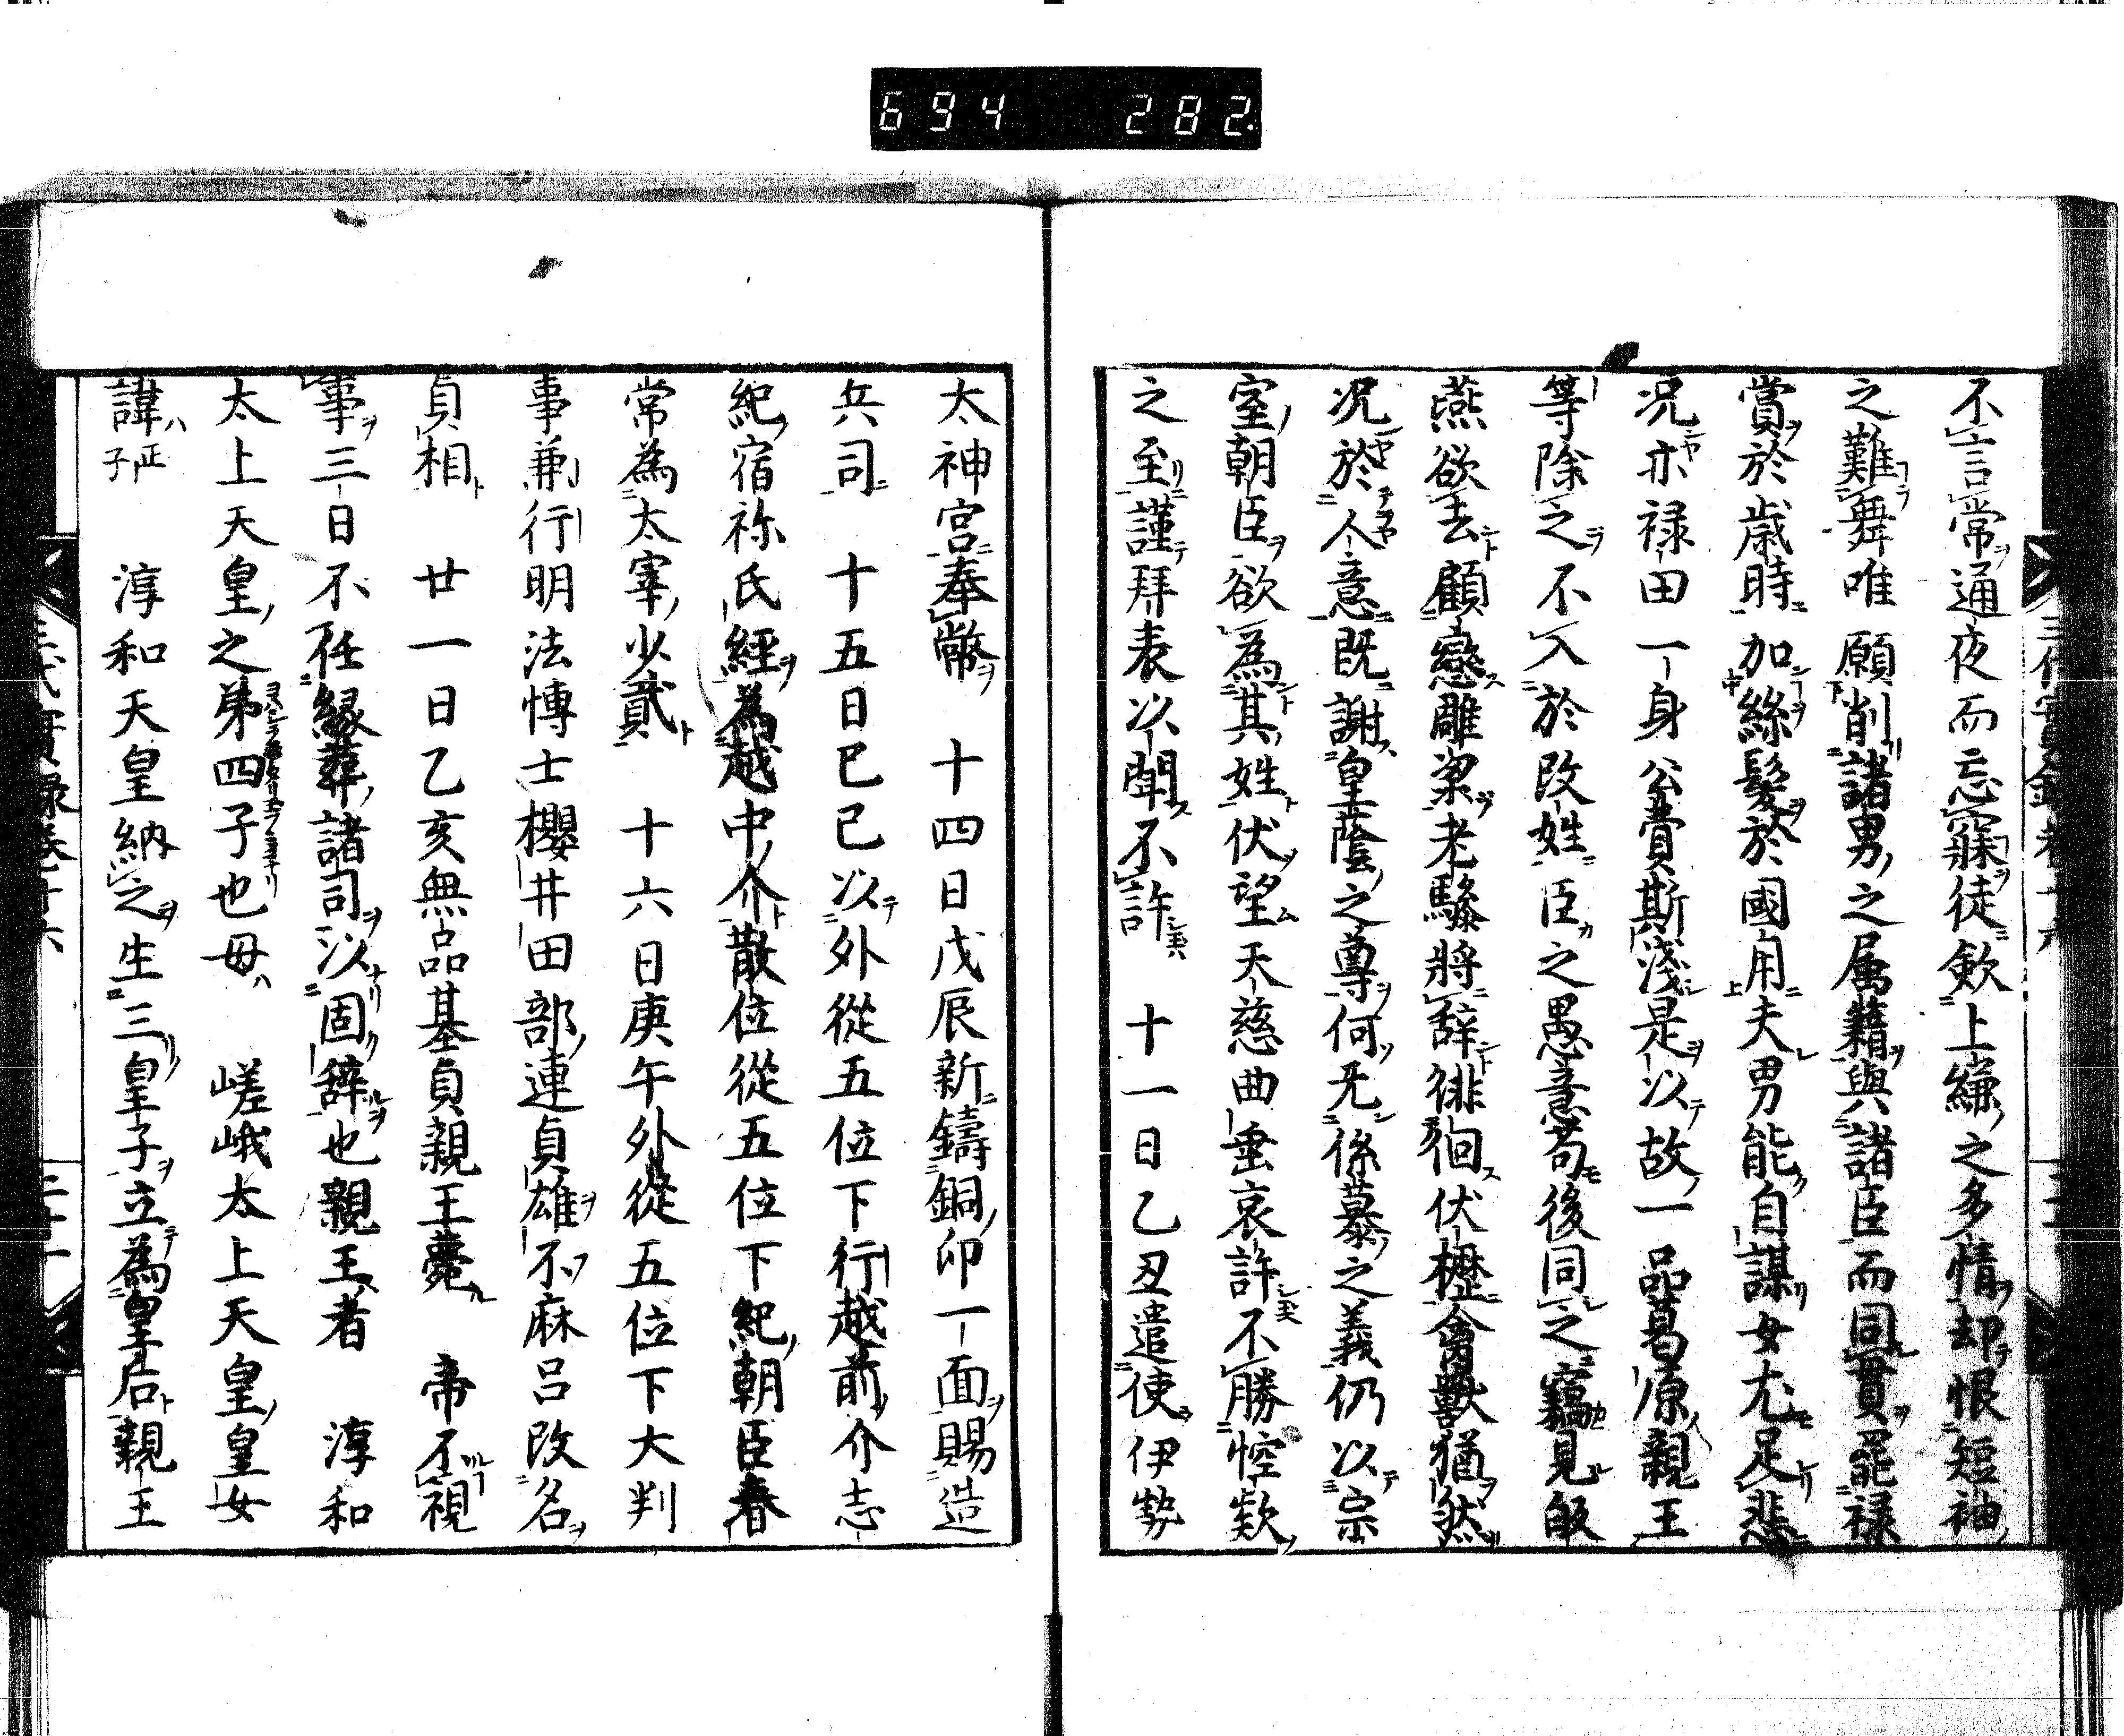 694 282
不言常通夜而忘寐徒歛上縑之多情却恨短袖
之難舞唯願削諸男之属籍與諸臣而同貫罷禄
賞於歳時加絲髪於國用夫男能自謀女尤足悲
况亦禄田一身公費斯淺是以故一品葛原親王
等除之不入於改姓臣之愚意苟後同之竊見皈
燕欲去顧戀雕梁老驂將辞徘徊伏櫪禽獸猶然
况於人意既謝皇蔭之尊何无係慕之義仍以宗
室朝臣欲為其姓伏望天慈曲垂哀許不勝悾欵
之至謹拜表以聞不許　十一日乙丑遣使伊勢
太神宮奉幣　十四日戊辰新鑄銅印一面賜造
兵司　十五日已已以外從五位下行越前介志
紀宿祢氏經為越中介散位從五位下紀朝臣春
常為太宰少貳　十六日庚午外從五位下大判
事兼行明法博士櫻井田部連貞雄不麻呂改名
貞相　廿一日乙亥無品基貞親王薨　帝不視
事三日不任縁葬諸司以固辞也親王者　淳和
太上天皇之弟四子也母　嵯峨太上天皇皇女
諱正子　淳和天皇納之生三皇子立為皇后親王